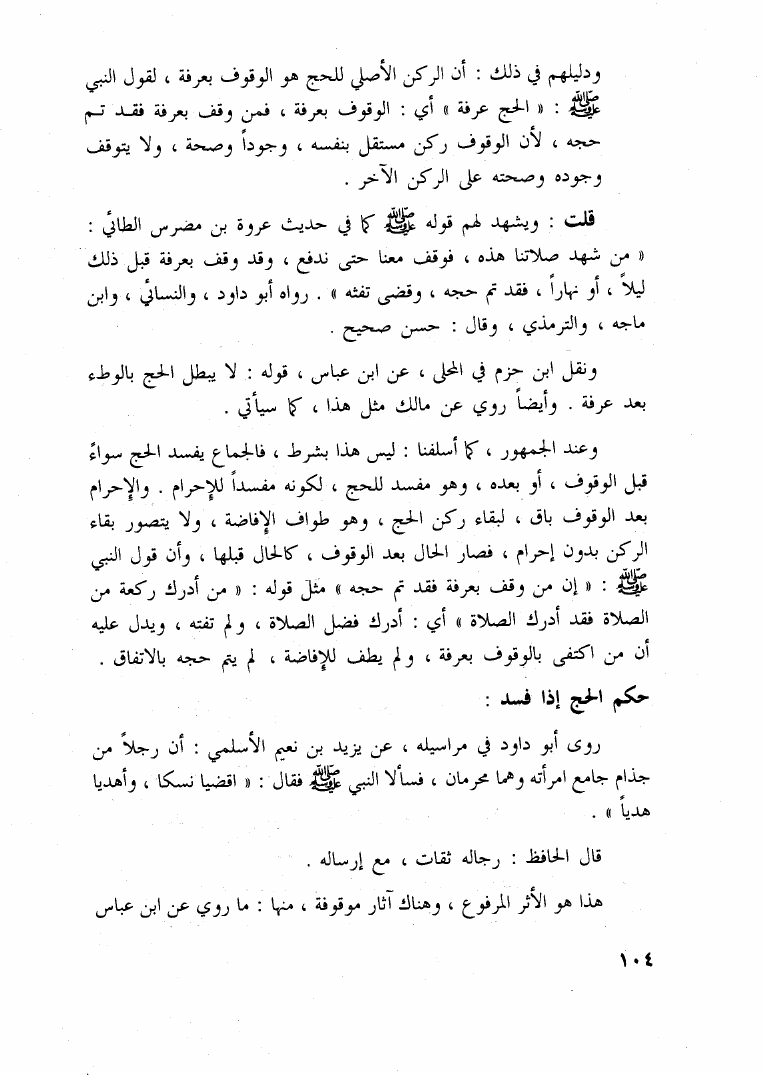 ودليلهم في ذلك : أن الركن الأصلي للحج هو الوقوف بعرفة ، لقول النبي
ﷺ : « الحج عرفة » أي : الوقوف بعرفة ، فمن وقف بعرفة فقد تم
حجه ، لأن الوقوف ركن مستقل بنفسه ، وجوداً وصحة ، ولا يتوقف
وجوده وصحته على الركن الآخر .
قلت : ويشهد لهم قوله ﷺ كما في حديث عروة بن مضرس الطائي :
« من شهد صلاتنا هذه ، فوقف معنا حتى ندفع ، وقد وقف بعرفة قبل ذلك
ليلاً ، أو نهاراً ، فقد تم حجه ، وقضى تفثه » . رواه أبو داود ، والنسائي ، وابن
ماجه ، والترمذي ، وقال : حسن صحيح .
ونقل ابن حزم في المحلى ، عن ابن عباس ، قوله : لا يبطل الحج بالوطء
بعد عرفة . وأيضاً روي عن مالك مثل هذا ، كما سيأتي .
وعند الجمهور ، كما أسلفنا : ليس هذا بشرط ، فالجماع يفسد الحج سواءً
قبل الوقوف ، أو بعده ، وهو مفسد للحج ، لكونه مفسداً للإحرام . والإحرام
بعد الوقوف باق ، لبقاء ركن الحج ، وهو طواف الإفاضة ، ولا يتصور بقاء
الركن بدون إحرام ، فصار الحال بعد الوقوف ، كالحال قبلها ، وأن قول النبي
ﷺ : « إن من وقف بعرفة فقد تم حجه » مثل قوله : « من أدرك ركعة من
الصلاة فقد أدرك الصلاة » أي : أدرك فضل الصلاة ، ولم تفته ، ويدل عليه
أن من اكتفى بالوقوف بعرفة ، ولم يطف للإفاضة ، لم يتم حجه بالاتفاق .
حكم الحج إذا فسد :
روى أبو داود في مراسيله ، عن يزيد بن نعيم الأسلمي : أن رجلاً من
جذام جامع امرأته وهما محرمان ، فسألا النبي ﷺ فقال : « اقضيا نسكا ، وأهديا
هدياً » .
قال الحافظ : رجاله ثقات ، مع إرساله .
هذا هو الأثر المرفوع ، وهناك آثار موقوفة ، منها : ما روي عن ابن عباس
١٠٤